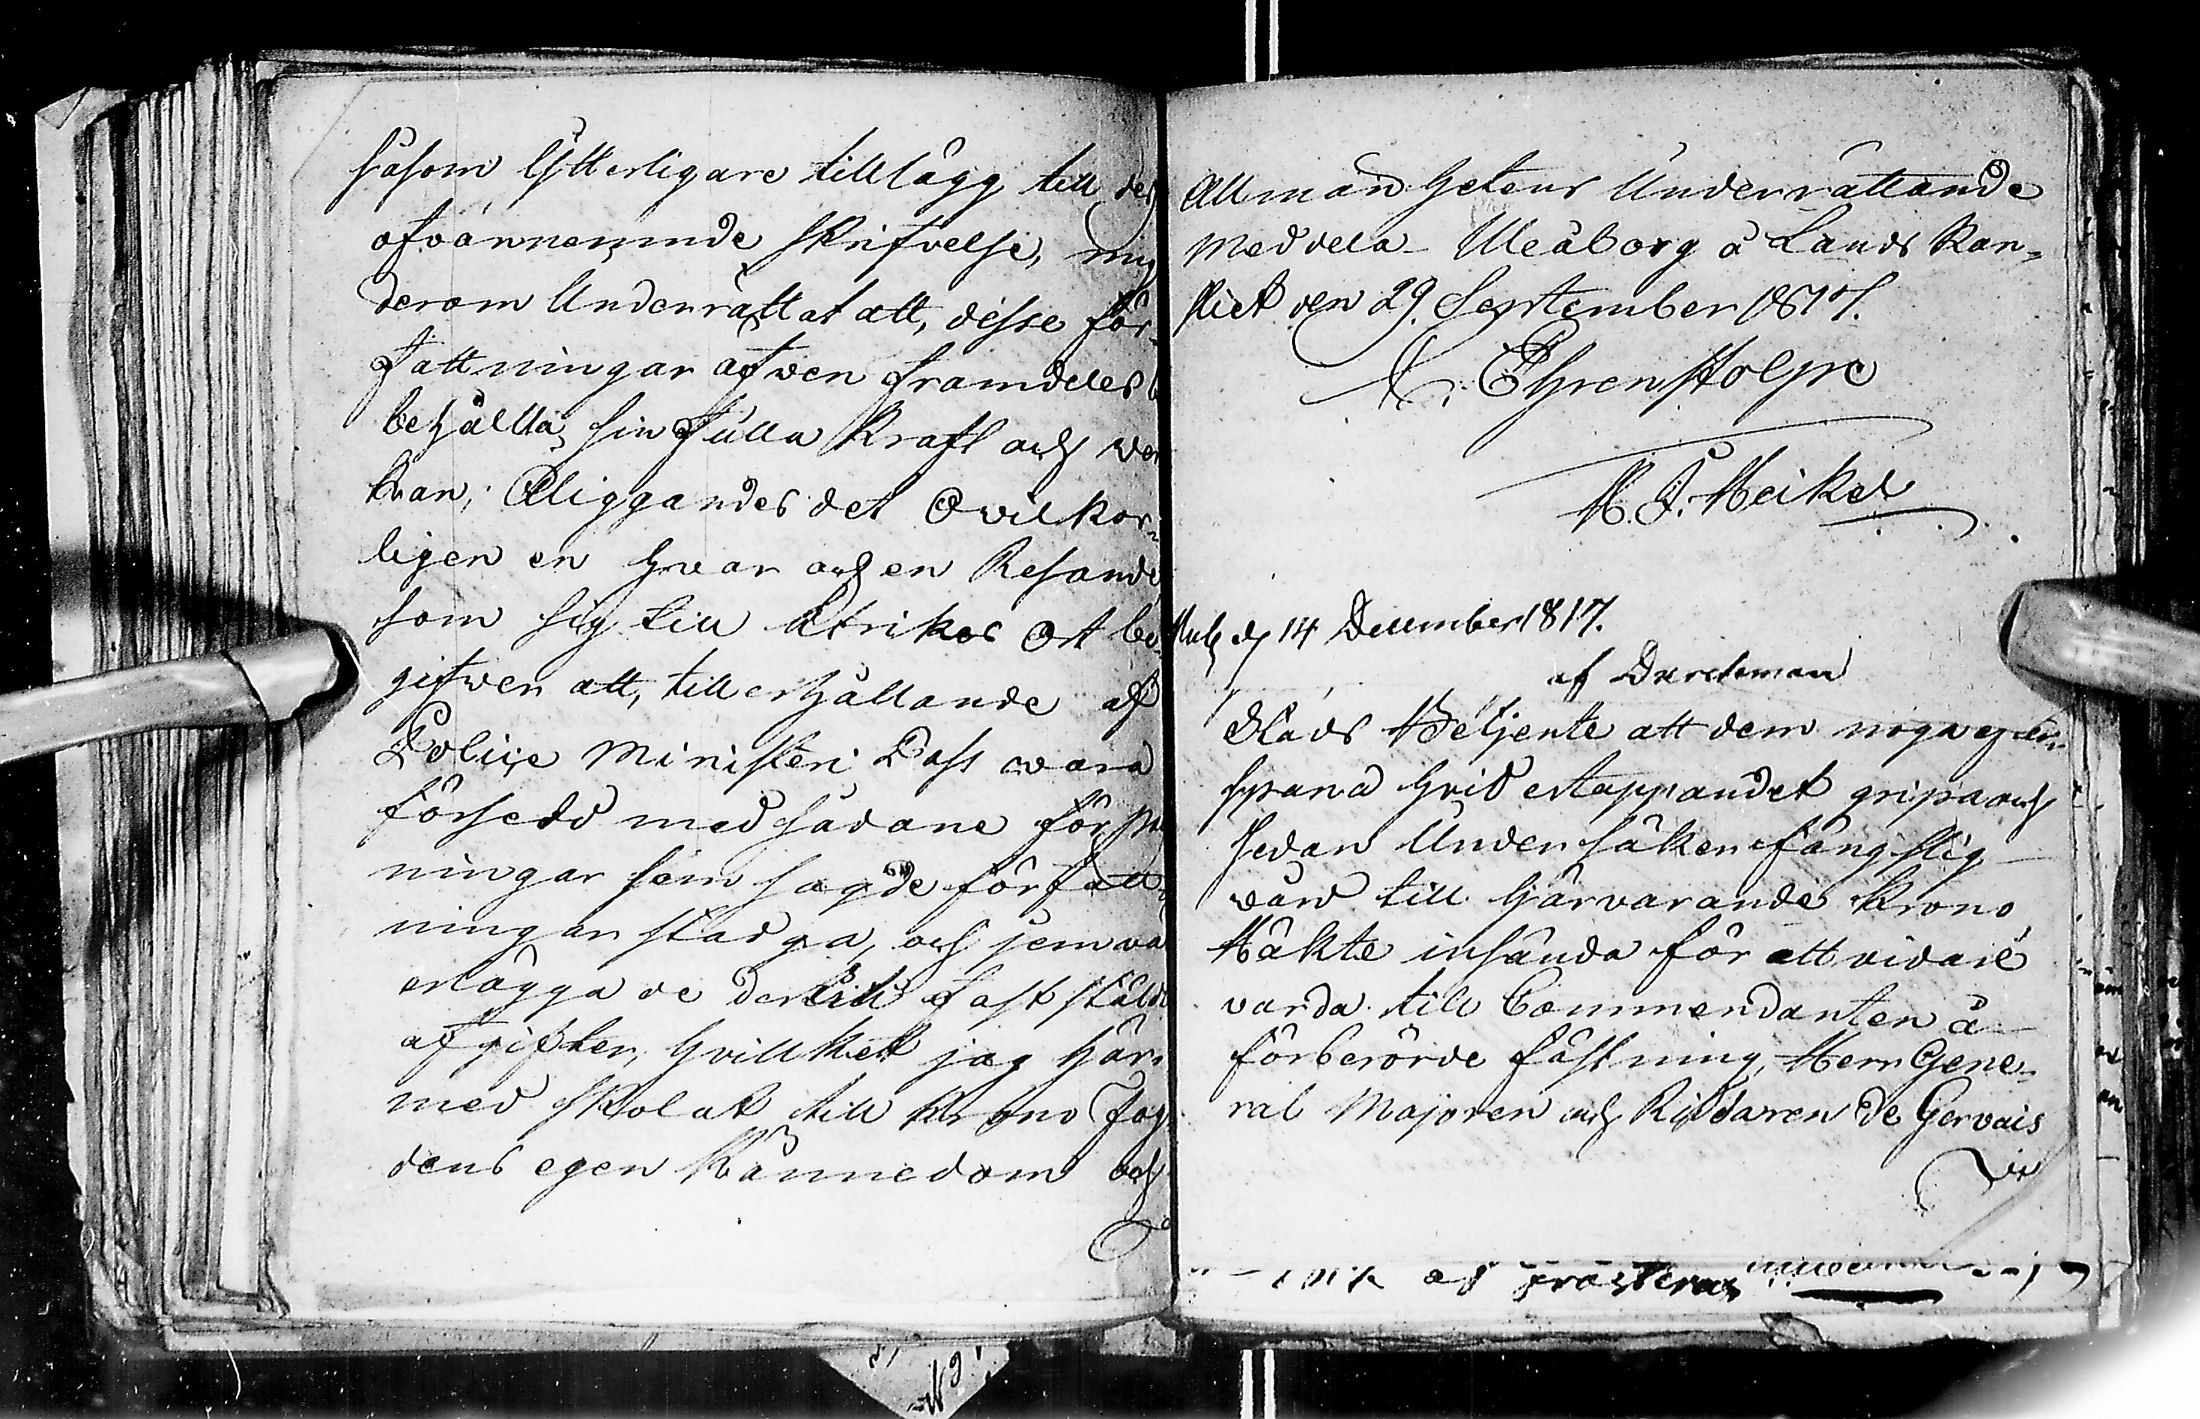 såsom Ytterligare tillägg till des
ofvannemnde Skrifvelse, mig
derom Underrättat att, desse för-
fattningar äfven framdeles
behålla sin fulla Kraft och ver
kan; Åliggandes det Ovilkor-
ligen en hvar och en Resande
som sig till Utrikes Ort be-
gifver att, till erhållande af
Police Ministeri Pass vara
försedd med sådane för Pas
ningar som sagde författ-
ningar stadga, och jemväl
erlägga de dertill fastställde
afgifter, hvilket jag här-
med skolat till Krono Fog
dens egen Kännedom och
Allmänhetens Underrättande
meddela Uleåborg å Lands Kan-
sliet den 29. September 1817.
S. Ehrenstolpe
M. J. Heikel
Publ d 14 December 1817.
af Durchman
Stads Betjente att dem noga efter-
spana hvid ertappandet gripa och
sedan Under säker fångslig
vård till härvarande Krono
Häkte insända för att vidare
varda till Commendanten å
förberörde fästning, Herr Gene-
ral Majoren och Riddaren de Gervais
af